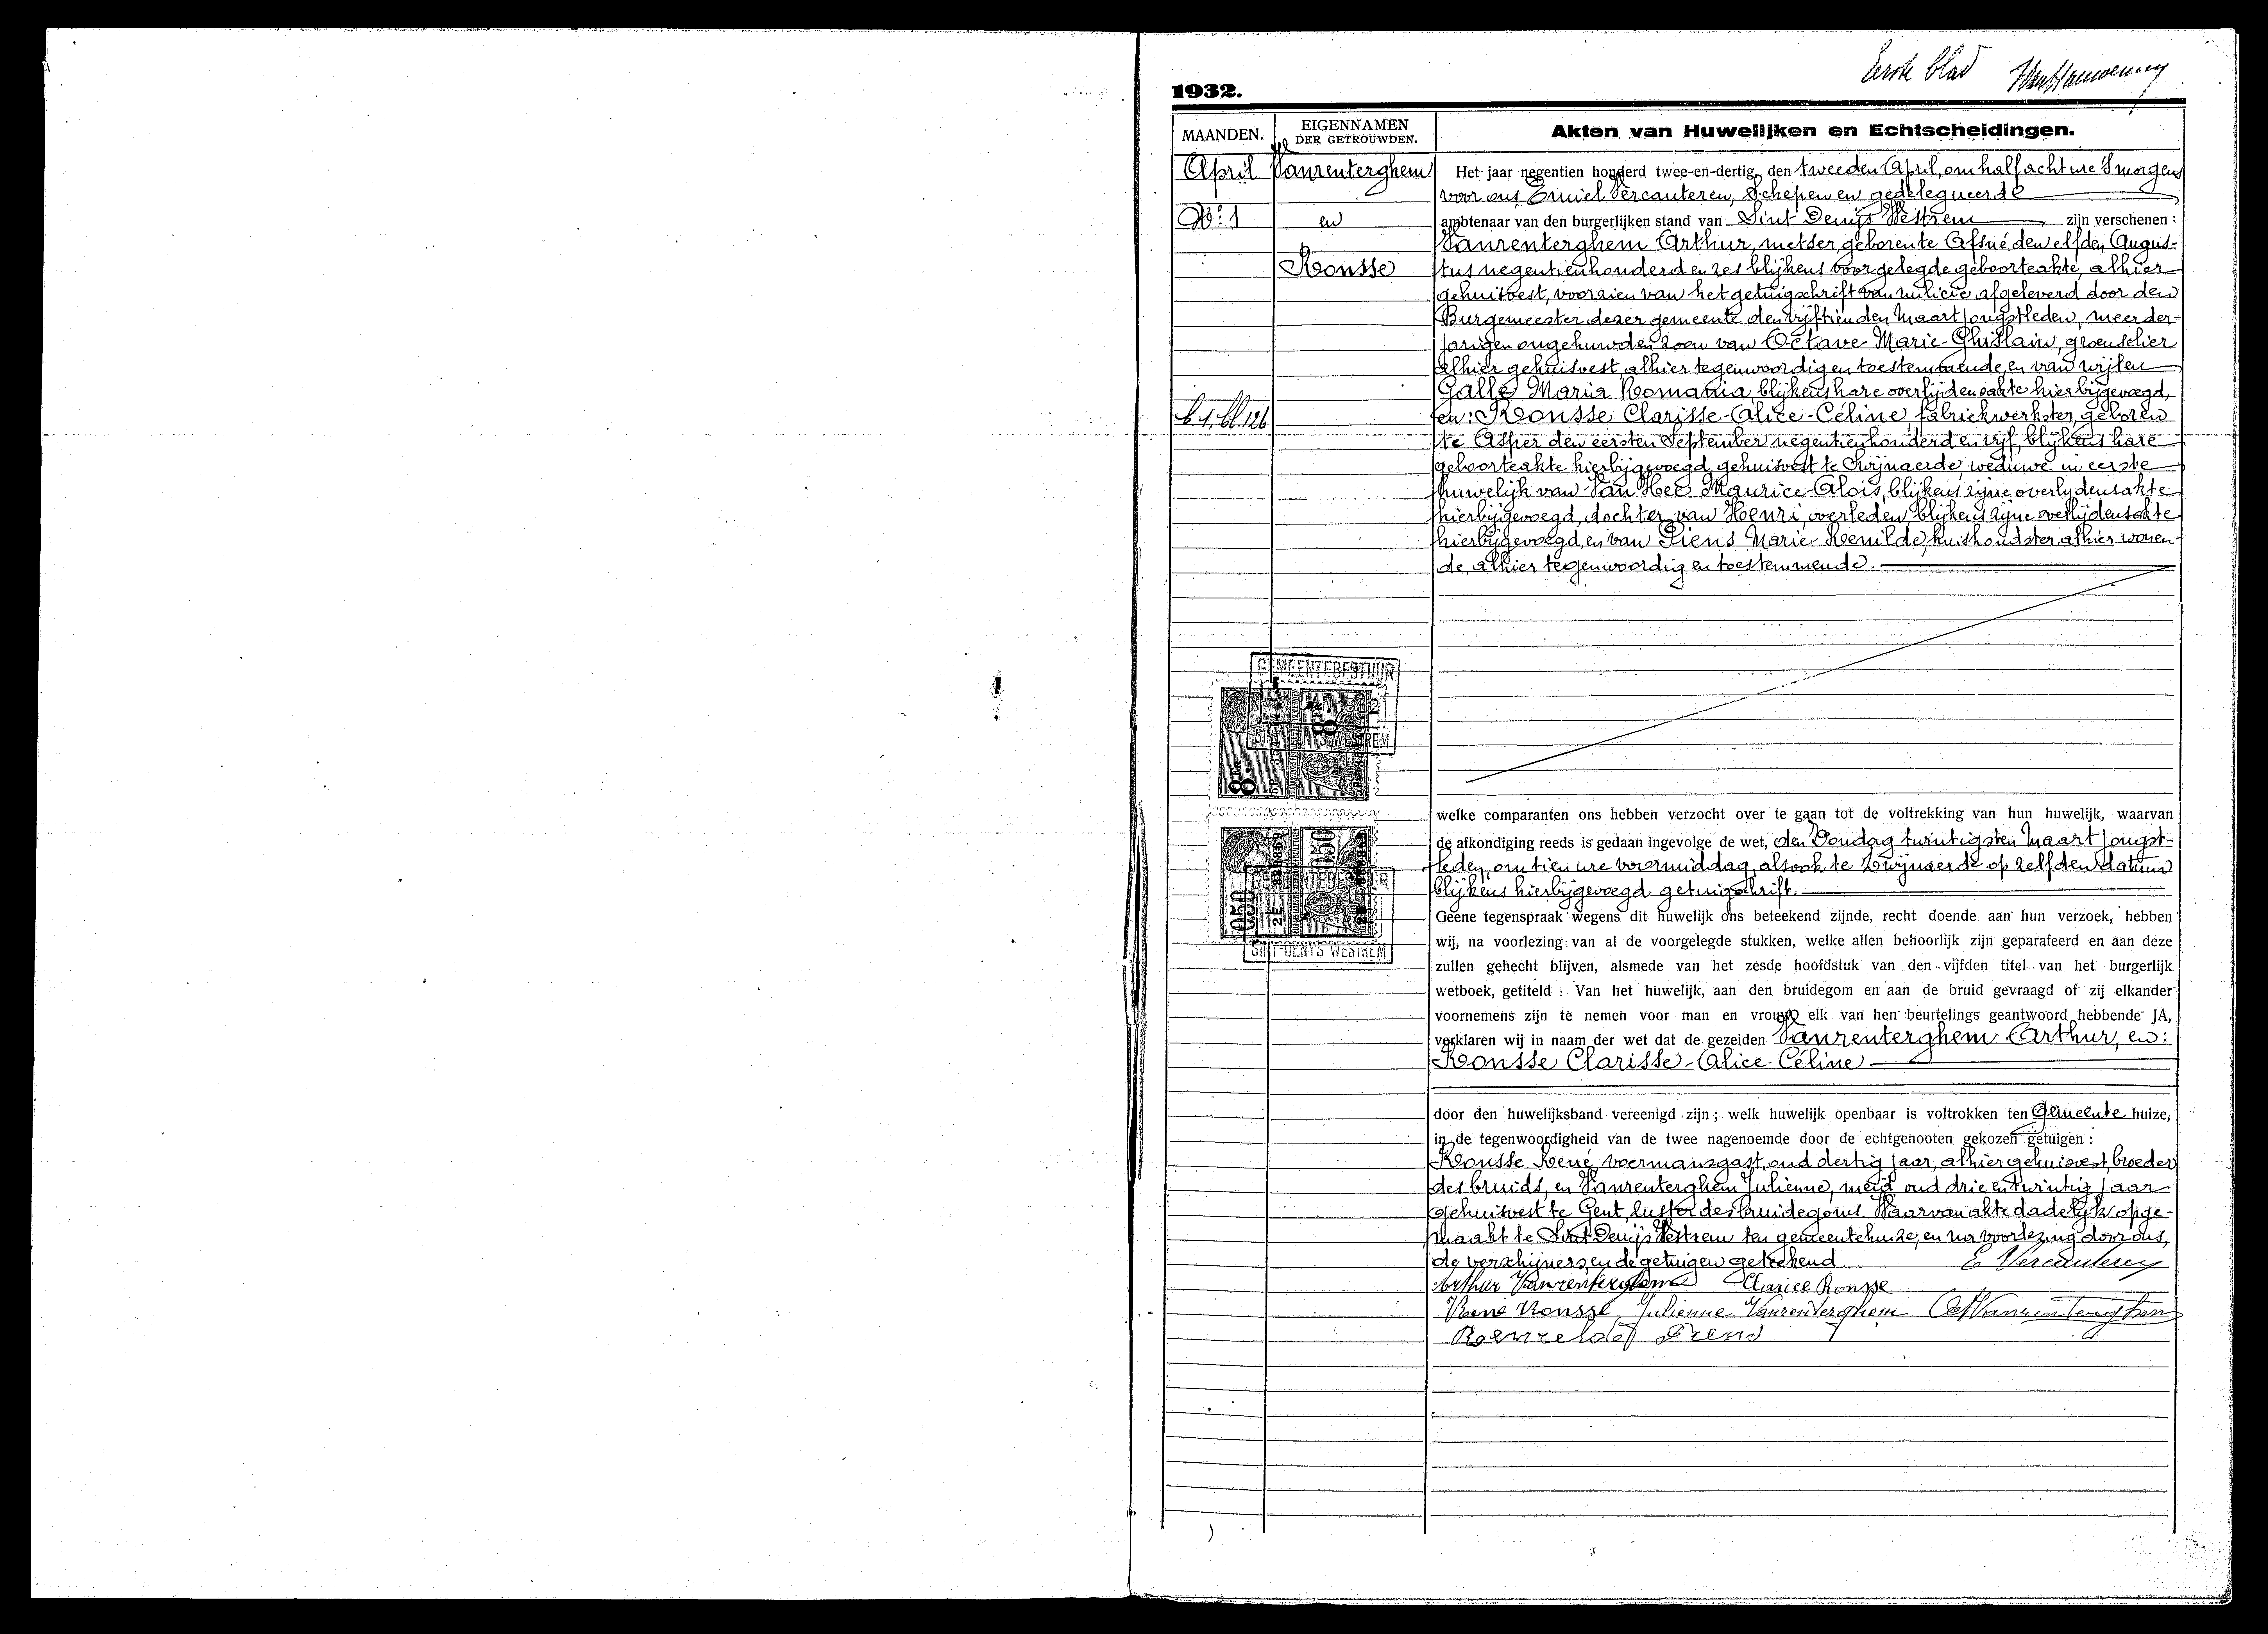 Eerste blad
1932.
MAANDEN.
EIGENNAMEN
DER GETROUWDEN.
Akten van Huwelijken en Echtscheidingen.
April
Vanrenterghem
Nº 1
en
Ronsse
Het jaar negentien honderd twee-en-dertig, den tweeden April, om half acht ure 's morgens
voor ons, Emiel Vercauteren, Schepen en gedelegueerde
ambtenaar van den burgerlijken stand van Sint Denijs Westrem zijn verschenen :
Vanrenterghem Arthur, metser, geboren te Afsné den elfden Augus-
tus negentienhonderd en zes blijkens voorgelegde geboorteakte, alhier
gehuisvest, voorzien van het getuigschrift van milicie afgeleverd door den
Burgemeester dezer gemeente den vijftienden Maart jongstleden, meerder-
jarigen ongehuwden zoon van Octave-Marie-Ghislain, groenselier
alhier gehuisvest, alhier tegenwoordig en toestemmende, en van wijlen
Galle Maria Romania, blijkens hare overlijdensakte hierbijgevoegd,
en: Ronsse Clarisse-Alice-Céline, fabriekwerkster, geboren
te Asper den eersten September negentienhonderd en vijf, blijkens hare
geboorteakte hierbijgevoegd, gehuisvest te Swijnaerde, weduwe in eerste
huwelijk van Van Hee Maurice-Alois, blijkens zijne overlydensakte
hierbijgevoegd, dochter van Henri, overleden, blijkens zijne overlijdensakte
hierbijgevoegd, en van Piens Marie-Romilde, huishoudster, alhier wonen-
de, alhier tegenwoordig en toestemmende.
GEMEENTEBESTUUR
SINT-DENYS WESTREM
8 FR
8 FR.
welke comparanten ons hebben verzocht over te gaan tot de voltrekking van hun huwelijk, waarvan
de afkondiging reeds is gedaan ingevolge de wet, den Zondag twintigsten Maart jongst-
leden, om tien ure voormiddag, alsook te Zwijnaerde op zelfden datum
blijkens hierbijgevoegd getuigschrift.
050
050
GEMEENTEBESTUUR
SINT-DENYS WESTREM
Geene tegenspraak wegens dit huwelijk ons beteekend zijnde, recht doende aan hun verzoek, hebben
wij, na voorlezing van al de voorgelegde stukken, welke allen behoorlijk zijn geparafeerd en aan deze
zullen gehecht blijven, alsmede van het zesde hoofdstuk van den vijfden titel van het burgerlijk
wetboek, getiteld : Van het huwelijk, aan den bruidegom en aan de bruid gevraagd of zij elkander
voornemens zijn te nemen voor man en vrouw elk van hen beurtelings geantwoord hebbende JA,
verklaren wij in naam der wet dat de gezeiden Vanrenterghem Arthur, en:
Ronsse Clarisse-Alice-Céline
door den huwelijksband vereenigd zijn ; welk huwelijk openbaar is voltrokken ten Gemeente huize,
in de tegenwoordigheid van de twee nagenoemde door de echtgenooten gekozen getuigen :
Ronsse René, voermansgast, oud dertig jaar, alhier gehuisvest, broeder
des bruids, en Vanrenterghem Julienne, meid, oud drie en twintig jaar
gehuisvest te Gent, zuster des bruidegoms. Waarvan akte dadelijk opge-
maakt te Sint Denijs Westrem ten gemeentehuize, en na voorlezing door ons,
de verschijners, en de getuigen geteekend
E Vercauteren
Arthur Vanrenterghem Clarice Ronsse
René Ronsse Julienne Vanrenterghem Oct Vanrenterghem